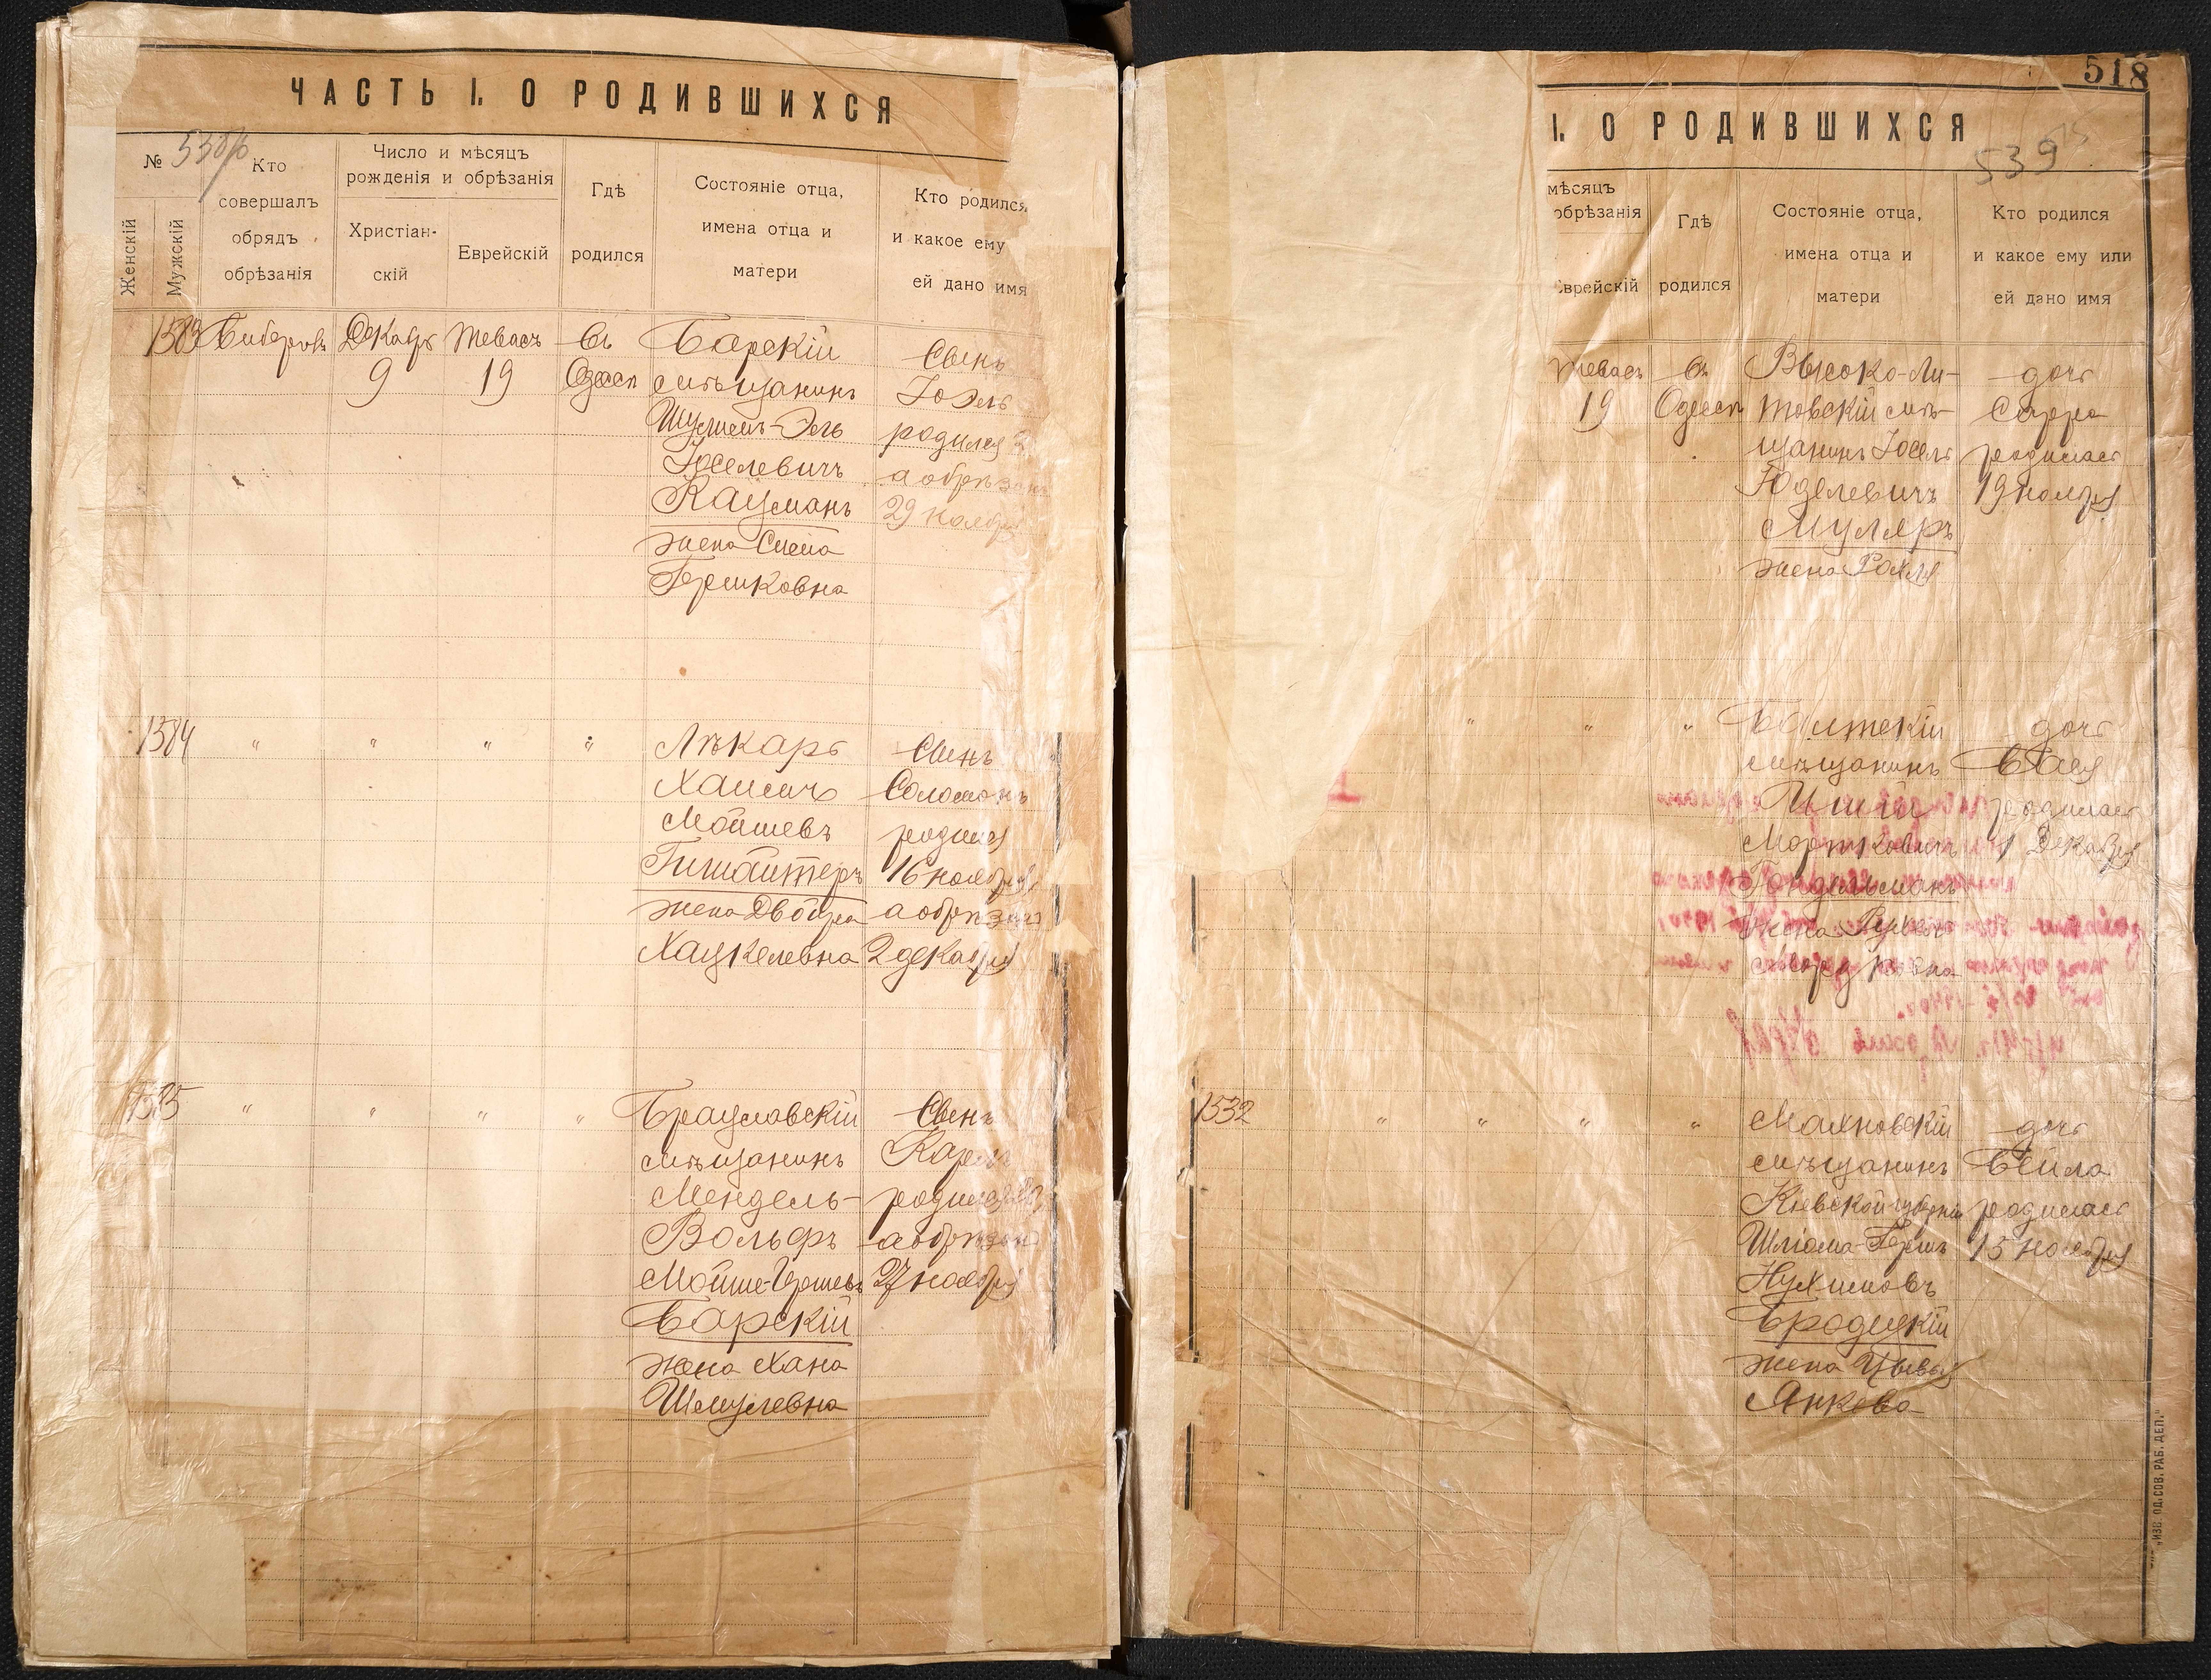 ЧАСТЬ I. О РОДИВШИХСЯ
№
Кто
совершалъ
обрядъ
обрѣзанія
Число и мѣсяцъ
рожденія и обрѣзанія
Женскій
Мужскій
Христіан-
скій
Еврейскій
Гдѣ
родился
Состояніе отца,
имена отца и
матери
Кто родился
и какое ему
ей дано имя
1583
Декабр
9
Тевасъ
19
Въ
Одессѣ
Барскій
мѣщанинъ
Іоселевичъ
Кацманъ
жена
Гершковна
Сынъ
Іоэль
родился
а обрѣзанъ
29 ноября
1584
"
"
"
"
Лѣкарь
Хаимъ
Мойшевъ
жена Двойра
Хацкелевна
Сынъ
Соломонъ
родился
16 ноября
а обрѣзанъ
2 декабря
1585
"
"
"
"
Брацлавскій
мѣщанинъ
Мендель-
Вольфъ
Мойше-Гершевъ
Барскій
жена Хана
Шмулевна
Сынъ
родился
а обрѣзанъ
27 ноября
518
I. О РОДИВШИХСЯ
539
мѣсяцъ
обрѣзанія
Еврейскій
Гдѣ
родился
Состояніе отца,
имена отца и
матери
Кто родился
и какое ему или
ей дано имя
Тевасъ
19
Въ
Одессѣ
Высоко-Ли-
товскій мѣ-
щанинъ Іосель
Юделевичъ
Муляръ
жена Рохля
дочь
Сарра
родилась
19 ноября
"
"
"
Балтскій
мѣщанинъ
Мортковичъ
жена
дочь
Бася
родилась
1 Декабря
1532
"
"
"
"
Махновскій
мѣщанинъ
Кіевской губерніи
Шліома-Гершъ
Нухимовъ
Бродецкій
жена Цывья
Янкова
дочь
Бейла
родилась
15 ноября
„ИЗВ. ОД. СОВ. РАБ. ДЕП."